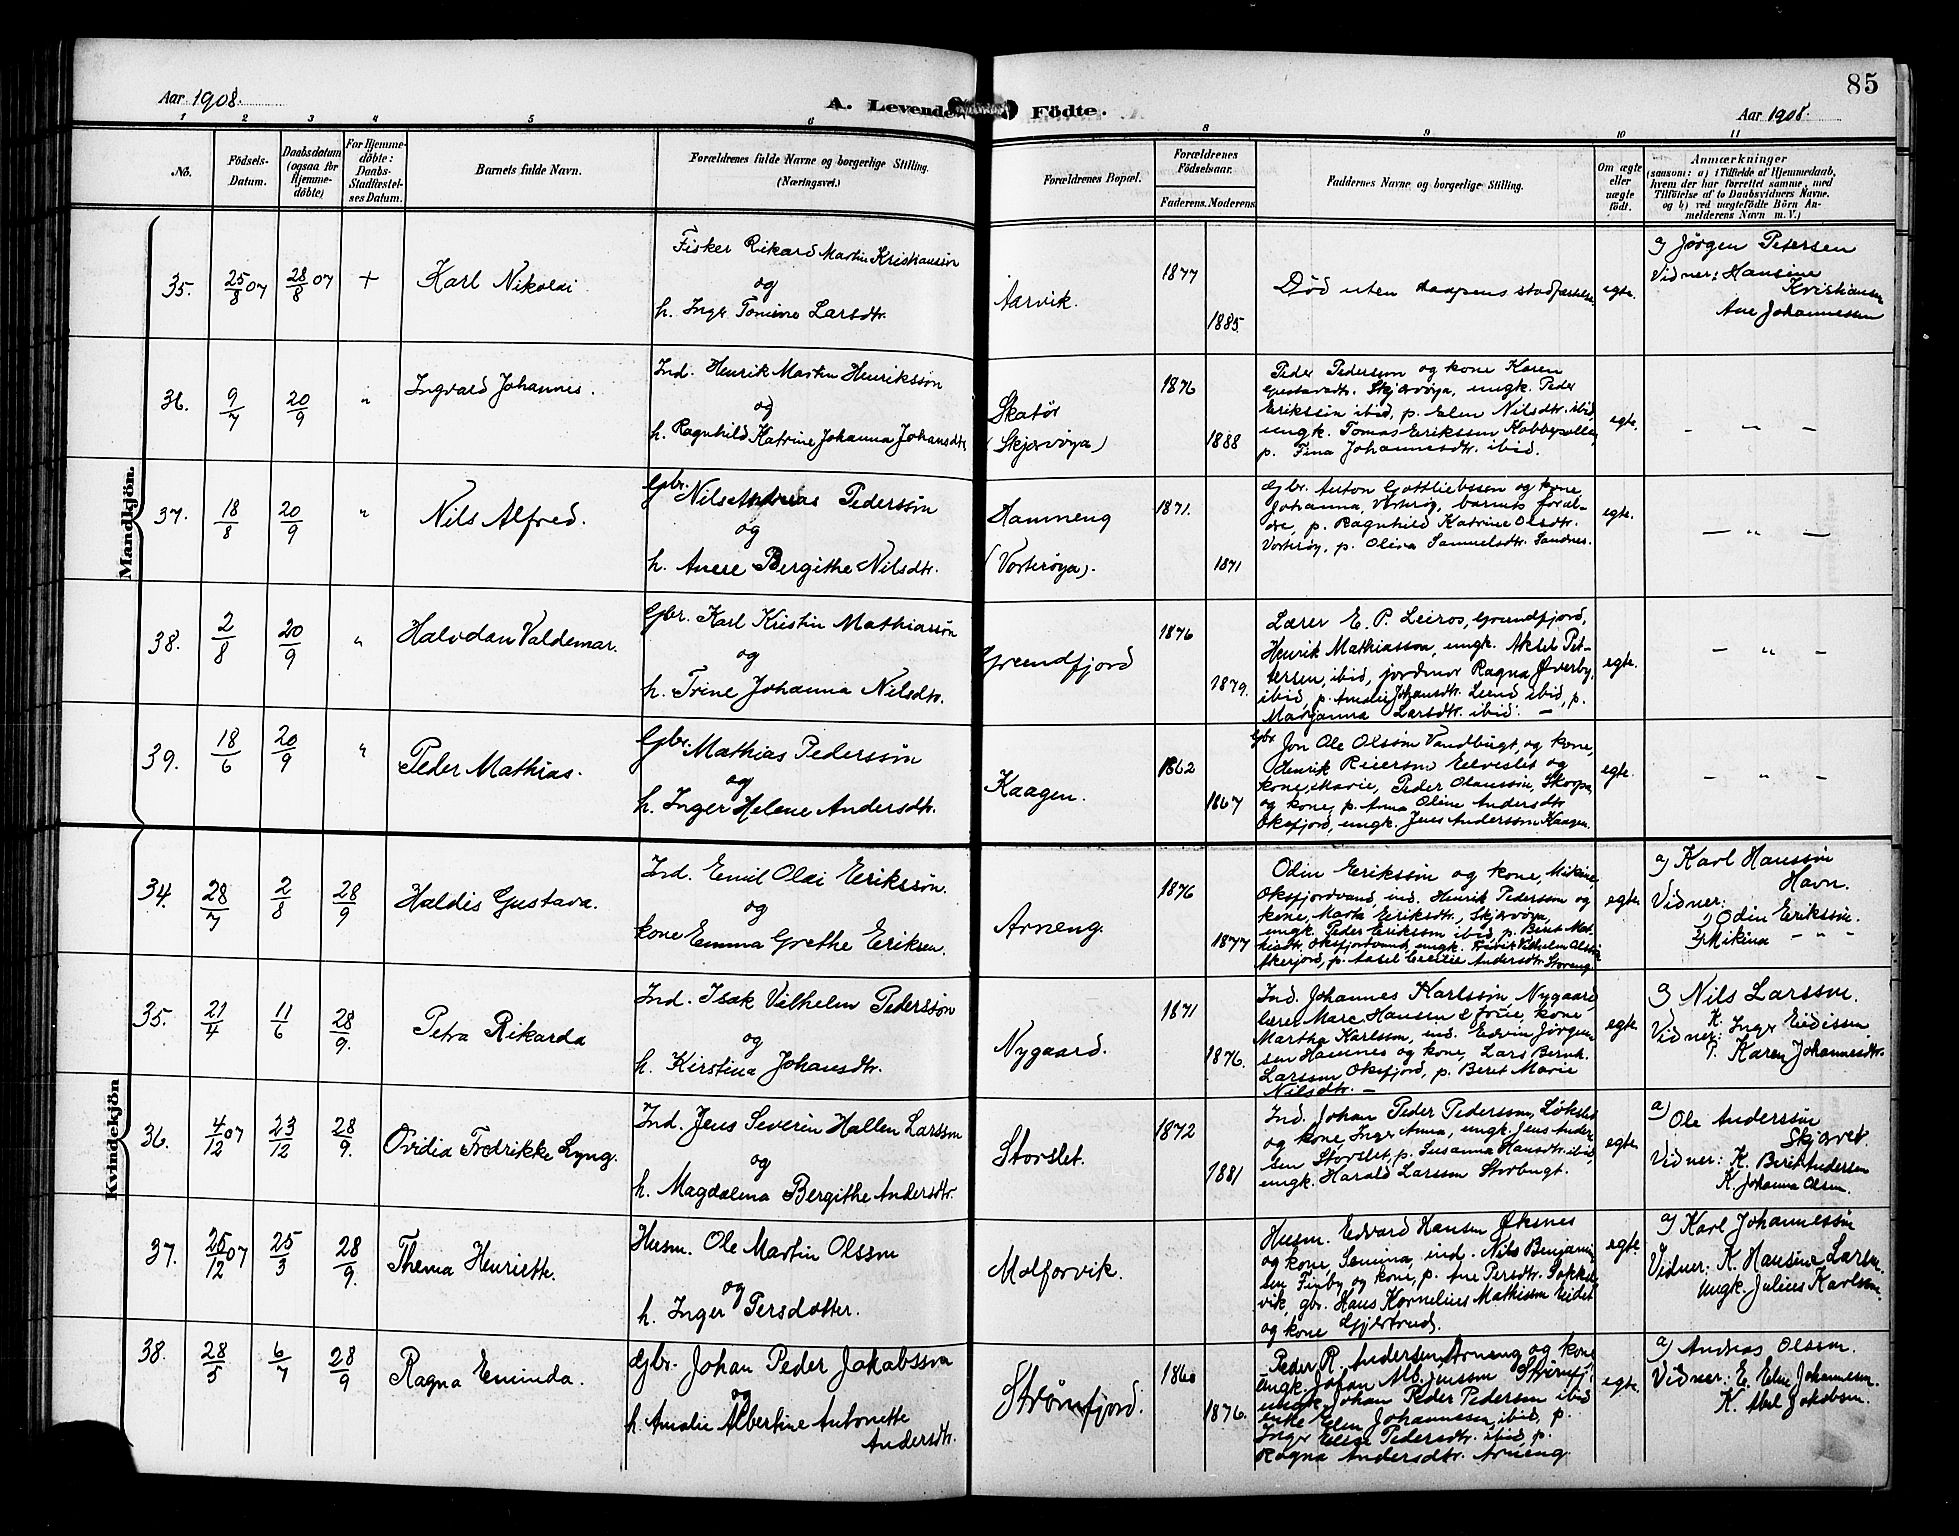 85
Aar 1908.
A. Levende Födte.
Aar 1908.
1 2 3 4 5 6 8 9 10 11
No.
Födsels-
Datum.
Daabsdatum
(ogsaa for
Hjemme-
döbte)
For Hjemme-
döbte:
Daabs-
Stadfæstel-
ses Datum.
Barnets fulde Navn.
Forældrenes fulde Navne og borgerlige Stilling.
(Næringsvei.)
Forældrenes Bopæl.
Forældrenes
Födselsaar.
Faderens. Moderens.
Faddernes Navne og borgerlige Stilling.
Om ægte
eller
uægte
födt.
Anmærkninger
(saasom: a) i Tilfælde af Hjemmedaab,
hvem der har forrettet samme, med
Tilföielse af to Daabsvidners Navne.
og b) ved uægtefödte Börn An-
melderens Navn m. V.)
Mandkjön.
35. 25/8 07 28/8 07 +
Karl Nikolai
Fisker Rikard Martin Kristiansøn
og
h. Inger Tomine Larsdtr.
Aarvik.
1877
1885.
Død uten daapens stadfæstelse.
egte.
a) Jørgen Petersen
Vidner: Hansine
Kristiansen
Ane Johannessen
36. 9/7 20/9 "
Ingvald Johannes.
Ind. Henrik Martin Henriksøn
og
h. Ragnhild Katrine Johanna Johansdtr
Skatør
(Skjærvøya)
1876
1888
Peder Pederson og kone Karen
Gustavsdtr. Skjærvøya, ungk. Peder
Erikssøn ibid, p. Elen Nilsdtr. ibid,
ungk. Tomas Erikssen Kobbepollen,
p. Fina Johannesdtr. ibid.
egte.
— " —
37. 18/8 20/9 "
Nils Alfred.
Gbr. Nils Andreas Pederssøn
og
h. Anere Bergithe Nilsdtr.
Hamneng
(Vorterøya).
1871.
1871
Gbr. Anton Gottliebssen og kone
Johanna, Vorterøy, barnets foræl-
dre, p. Ragnhild Katrine Olsdtr.
Vorterøy, p. Oliva Samuelsdtr. Sandnes.
egte.
— " —
38. 2/8 20/9 "
Halvdan Valdemar.
Gbr. Karl Kristin Mathiassøn
og
h. Trine Johanna Nilsdtr.
Grundfjord
1876
1879.
Lærer E. P. Leiros, Grundfjord,
Henrik Mathiasson, ungk. Aksel Pet-
tersen, ibid, jordmor Ragna Øverby,
ibid, p. Amalie Johansdtr. Lund ibid, p.
Marjanna Larsdtr. ibid. —
egte.
— " —
39. 18/6 20/9 "
Peder Mathias.
Gbr. Mathias Pederssøn
og
h. Inger Helene Andersdtr.
Kaagen.
1862
1867
Gbr Jon Ole Olssøn Vandbugt, og kone,
Henrik Reiersen og
kone, Marie, Peder Olaussøn, Skorpa
og kone, p. Anna Oline Andersdtr
Oksfjord, ungk. Jens Anderssøn Kaagen.
egte.
— " —
Kvindekjön
34. 28/7 2/8 28/9
Haldis Gustava.
Ind. Emil Olai Erikssøn.
og
kone Emma Grethe Eriksen.
Arneng.
1876
1877
Odin Erikssøn og kone, Mikine,
Oksfjordvand, ind. Henrik Pederssøn og
kone, Marta Eriksdtr., Skjærvøya,
ungk. Peder Erikssøn ibid, p. Beret Mat-
hisdtr. Oksfjordvand, ungk. Fredrik Vilhelm Olssøn
p. Aasel Cecilie Andersdtr. Storeng
egte.
a) Karl Hanssøn
Havn.
Vidner:
1) Odin Erikssøn.
2) Mikina — " —
35. 21/4 11/6 28/9.
Petra Rikarda
Ind. Isak Vilhelm Pederssøn
og
h. Kirstina Johansdtr.
Nygaard.
1871
1876.
Ind. Johannes Karlssøn, Nygaard,
lærer Marc Hansen & frue, kone
Martha Karlssøn, ind. Edvin Jørgen-
sen Hamnes og kone, Lars Bernh.
Larsson Oksfjord, p. Beret Marie
Nilsdtr. —
egte
a) Nils Larsson.
Vidner: K. Inger Eidissen
P. Karen Johannesdtr.
36. 4/12 07 23/12 28/9.
Ovidia Fredrikke Lyng.
Ind. Jens Severin Hallen Larsson
og
h. Magdalena Bergithe Andersdtr.
Storslet.
1872
1881
Ind. Johan Peder Pedersson, Løkslet
og kone, Inger Anna, ungk. Jens Ander-
sen Storslet, p. Susanna Hansdtr. ibid,
ungk. Harald Larsson Storbugt.
egte
a) Ole Anderssøn
Skjærvø.
Vidner: K. Berit Andersen
K. Johanna Olsen.
37. 25/12 07 25/3 28/9.
Thema Henriette.
Husm. Ole Martin Olsson
og
h. Inger Persdotter.
Molforvik.
Husm. Edvard Hansen Øksnes
og kone, Semina, ind. Nils Benjamin-
sen Finby og kone, p. Ane Persdtr. Sokkel-
vik, gbr. Hans Kornelius Mathisson Eidet
og kone Gjertrud.
egte.
a) Karl Johannessøn
Vidner: K. Hansine Larsen.
ungk. Julius Karlsson.
38. 28/5 6/7 28/9
Ragna Eminda.
Gbr. Johan Peder Jakobsson
og
h. Amalie Albertine Antonette
Andersdtr.
Strømfjord.
1860
1876.
Peder R. Andersen Arneng og kone,
ungk. Johan Alb. Jensson Strømfj.
ungk. Johan Peder Pedersen ibid
enke Elen Johannessen, ibid, p.
Inger Elise Pedersdtr. ibid, p.
Ragna Andersdtr. Arneng.
egte.
a) Andreas Olsson.
Vidner: E. Elen Johannessen.
K. Abel Jakobsen.